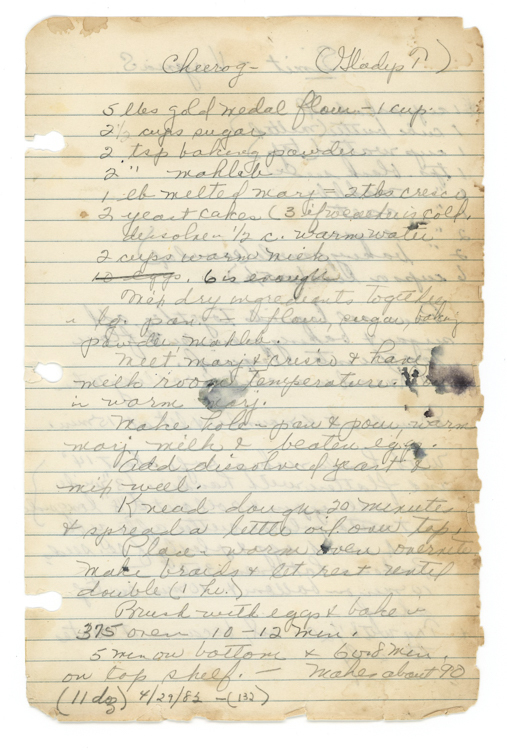 Cheerog - (Gladys T.)
5 lbs gold medal flour - 1 cup.
2½ cups sugar
2 tsp baking powder
2 " mahleb
1 lb melted marj = 2 tbs crisco
2 yeast cakes (3 if weather is cold,
dissolve ½ c. warm water
2 cups warm milk
10 eggs, 6 is enough
Mix dry ingredients together
lg. pan - flour, sugar, baking
powder mahleb.
Melt marj & crisco & have
milk room temperature.
in warm marj.
Make hole - pan & pour warm
marj, milk & beaten eggs.
Add dissolved yeast &
mix well.
Knead dough 20 minutes
& spread a little oil over top.
Place - warm oven overnite
Make braids & let rest until
double (1 hr.)
Brush with eggs & bake in
375 oven 10 - 12 min.
5 min on bottom & 6 or 8 min.
on top shelf. - Makes about 90
(11 doz) 4/29/83 - (132)